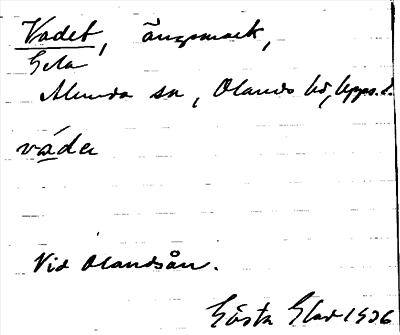 Vadet, ängsmark,
Gela
Alunda sn, Olands hd, Upps. l.
váda
Vid Olandsån.
Gösta Elad 1936